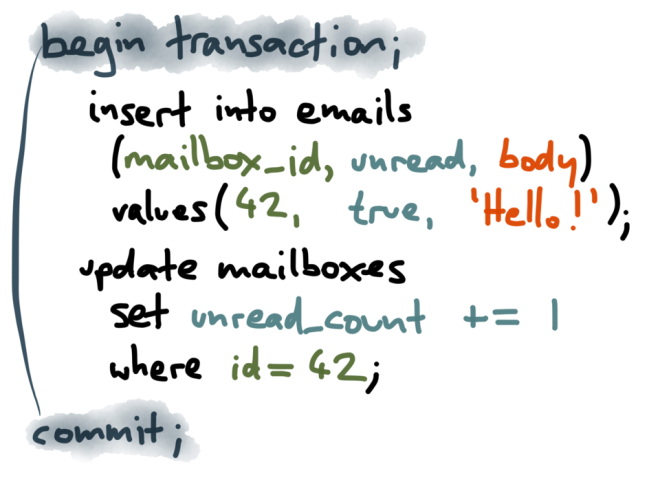 begin transaction;
insert into emails
(mailbox_id, unread, body)
values(42, true, 'Hello!');
update mailboxes
set unread_count += 1
where id = 42;
commit;